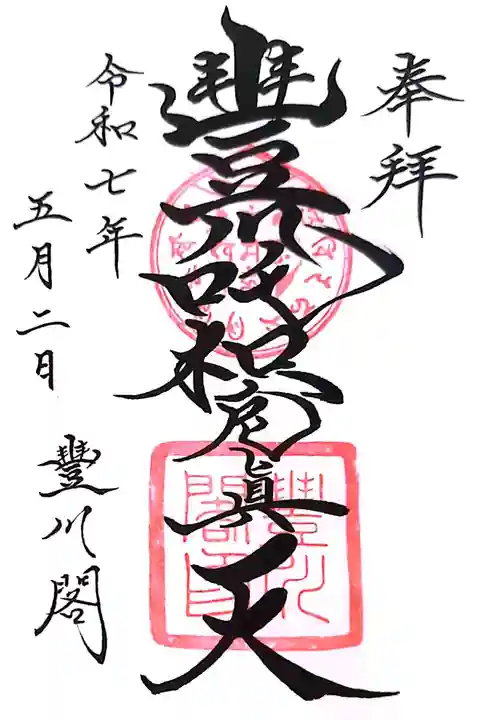 奉拝
豐川吒枳尼眞天
豐川
閣印
令和七年
五月二日
豐川閣